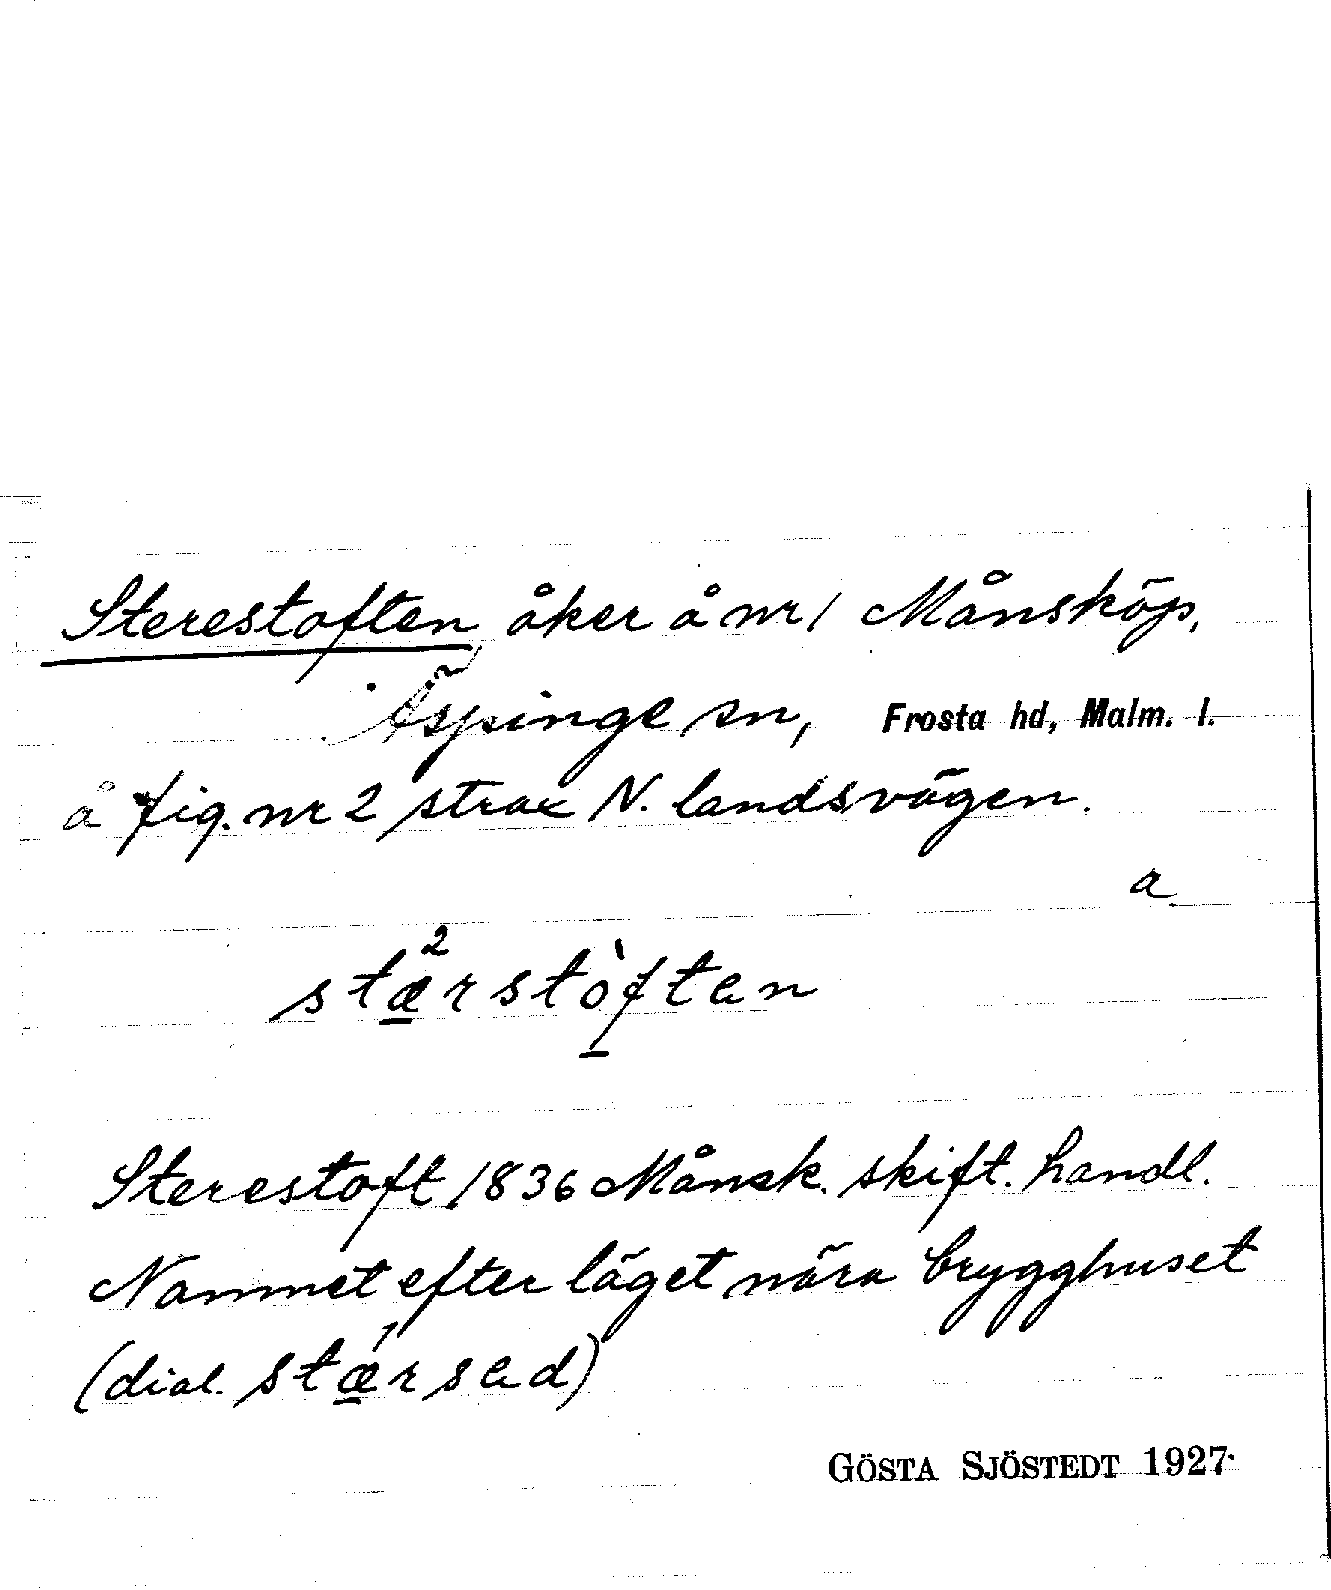 Sterestoften åker å nr 1 Månsköp,
Äspinge sn, Frosta hd, Malm. l.
å fig. nr 2 strax N. landsvägen.
a
stærstòften
2
Sterestoft 1836 Månsk. skift. handl.
Namnet efter läget nära brygghuset
(dial. stǽrsed)
GÖSTA SJÖSTEDT 1927